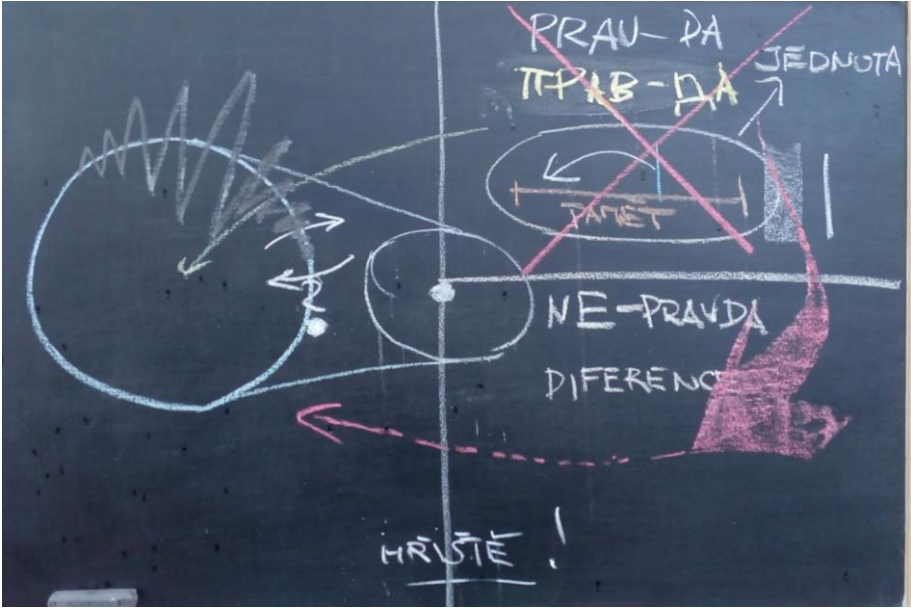 PRAV-DA
ПРАВ-ДА
JEDNOTA
PAMĚT
NE-PRAVDA
DIFERENCE
HŘIŠTĚ!